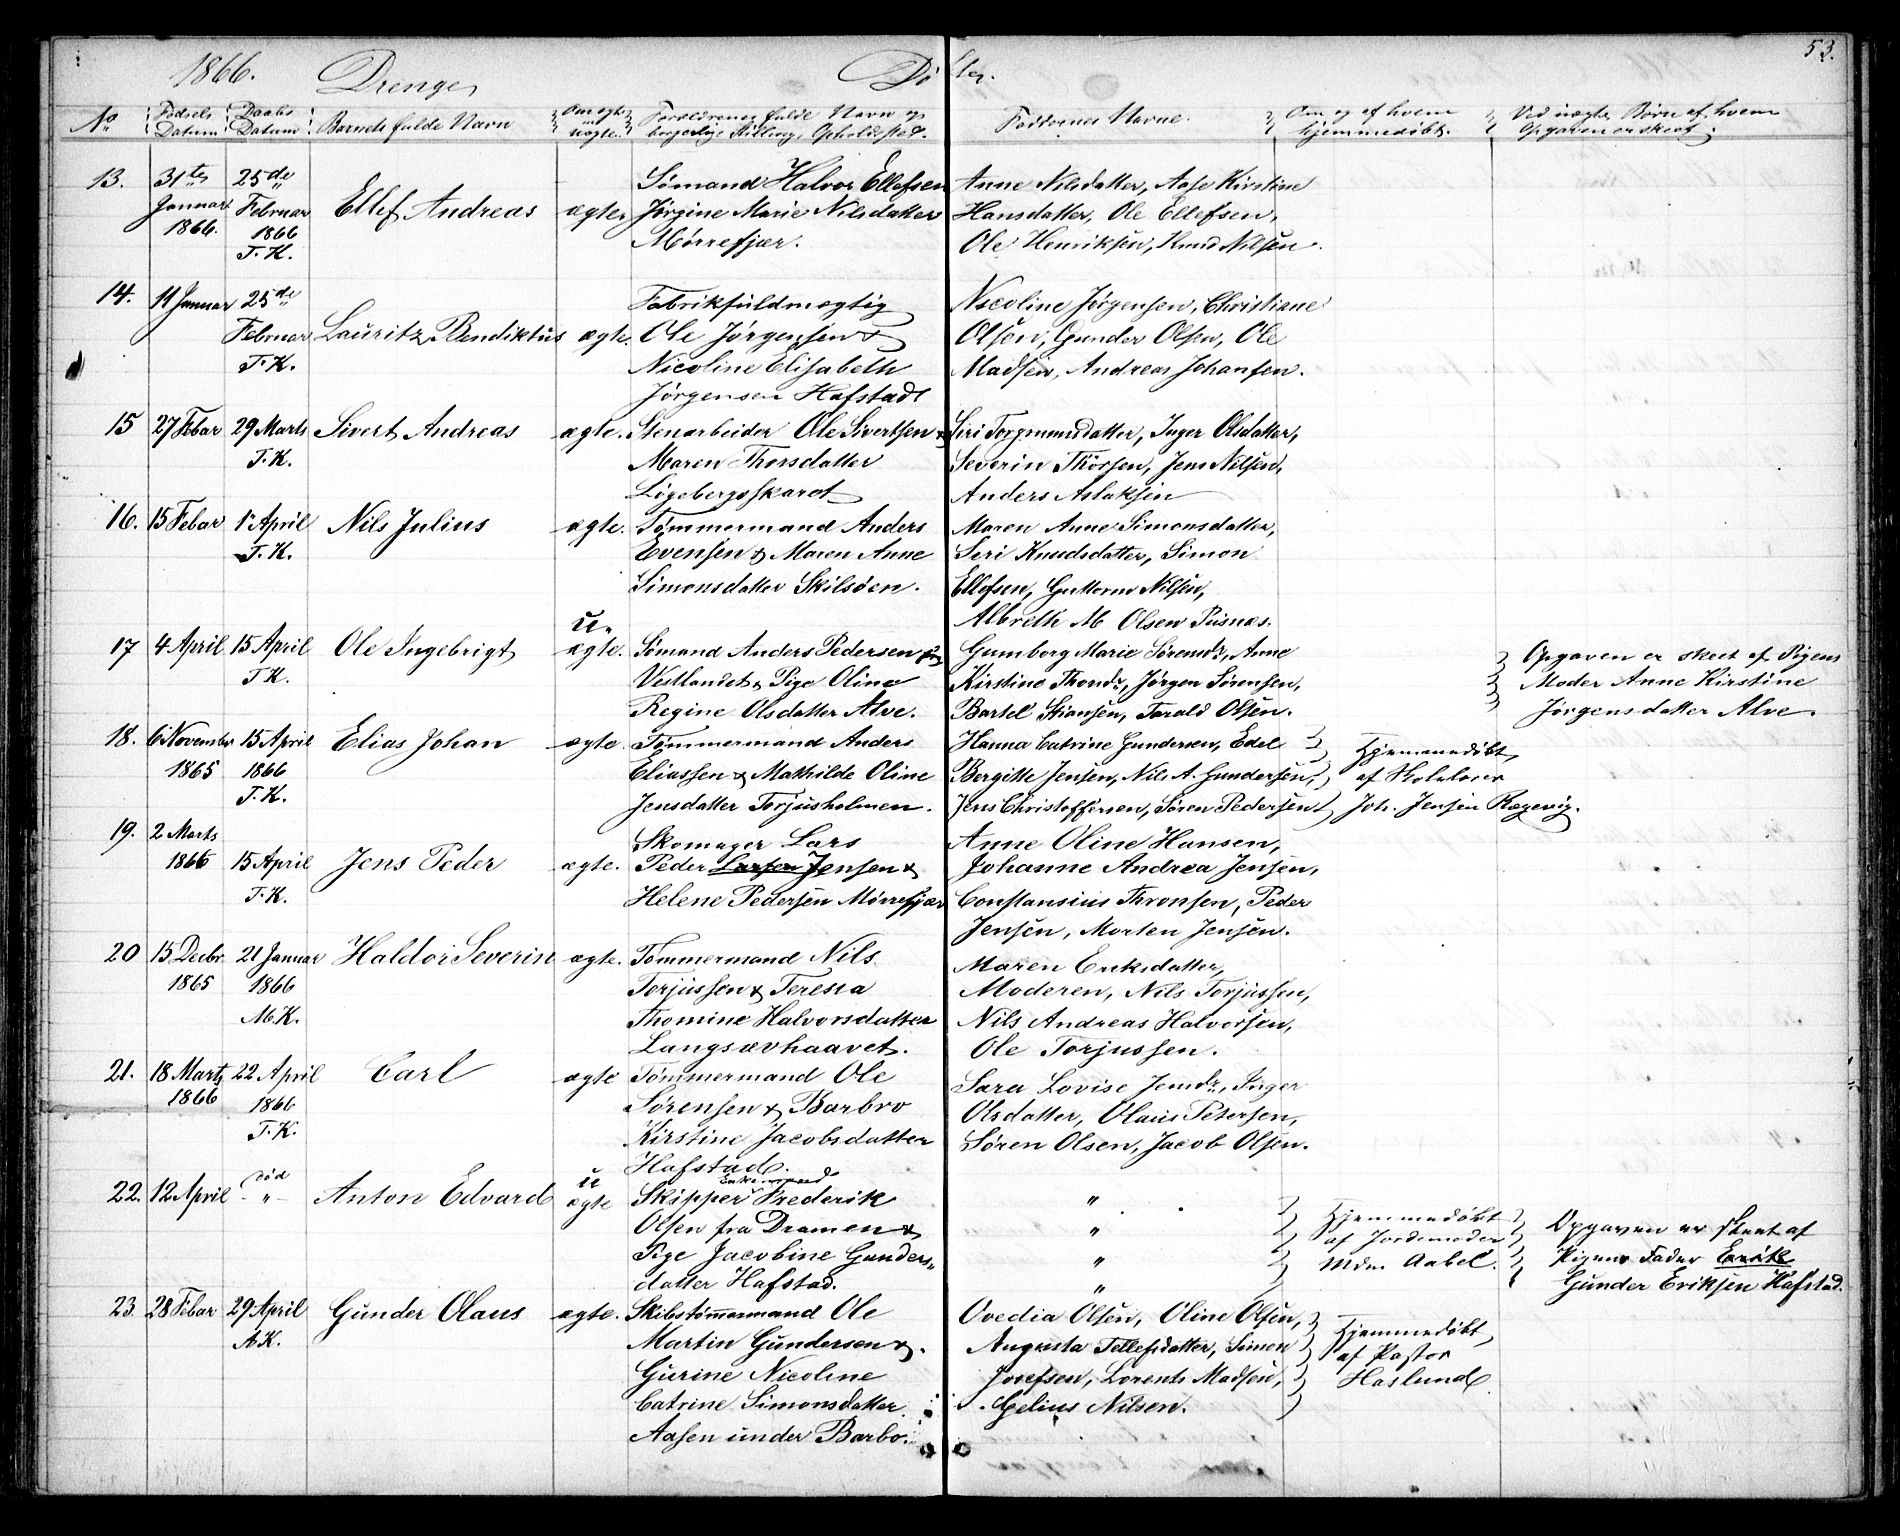 53.
1866. Drenge Døbte.
No Fødsels Datum Daabs Datum Barnets fulde Navn Om ægte ell. uægte. Forældrenes fulde Navn og borgerlige Stilling, Opholdsted. Faddernes Navne. Om og af hvem hjemmedøbt. Ved uægte Børn af hvem Opgaven er skeet.
13. 31te Januar 1866. 25de Februar 1866 T. K. Ellef Andreas ægte
Sømand Halvor Ellefsen
Jørgine Marie Nilsdatter
Mørrefjær.
Anne Nilsdatter, Aase Kirstine
Hansdatter, Ole Ellefsen,
Ole Henriksen, Knud Nilsen.
14. 11 Januar 25de Februar T. K. Lauritz Bendiktus ægte.
Fabrikfuldmægtig
Ole Jørgensen &
Nicoline Elisabeth
Jørgensen Hafstad
Nicoline Jørgensen, Christiane
Olsen, Gunder Olsen, Ole
Madsen, Andreas Johansen.
15 27 Febar 29 Marts T. K. Sivert Andreas ægte.
Stenarbeider Ole Sivertsen &
Maren Thorsdatter
Ligebergsskaret
Siri Torgmunsdatter, Inger Olsdatter,
Severin Thorsen, Jens Nilsen,
Anders Aslaksen
16. 15 Febar 1 April T. K. Nils Julius ægte.
Tømmermand Anders
Evensen & Maren Anne
Simonsdatter Skilsøen.
Maren Anne Simonsdatter,
Seri Knudsdatter, Simon
Ellefsen, Guttorm Nilsen,
Albreth M Olsen Pusnes.
17 4 April 15 April T K. Ole Ingebrigt u. ægte.
Sømand Anders Pedersen fra
Vestlandet & Pige Oline
Regine Olsdatter Alve.
Gumborg Marie Sørensdr, Anne
Kirstine Thorsdr, Jørgen Sørensen,
Bartel Stiansen, Tarald Olsen.
Opgaven er skeet af Pigens
Moder Anne Kirstine
Jørgensdatter Alve.
18. 6 November 1865 15 April 1866 T. K. Elias Johan ægte.
Tømmermand Anders
Eliassen & Mathilde Oline
Jensdatter Torjusholmen.
Hanna Catrine Gundersen, Edel
Bergitte Jensen, Nils A. Gundersen,
Jens Christoffersen, Søren Pedersen
Hjemmedøbt
af Skolelærer
Joh. Jensen Rægevig.
19. 2 Marts 1866 15 April T. K. Jens Peder ægte.
Skomager Lars
Peder Larsen Jensen &
Helene Pedersen Mørrefjær
Anne Oline Hansen,
Johanne Andrea Jensen,
Constansius Thronsen, Peder
Jensen, Morten Jensen.
20 15 Decbr 1865 21 Januar 1866 M. K. Haldor Severin ægte.
Tømmermand Nils
Torjussen & Teresia
Thomine Halvorsdatter
Langsævhaavet.
Maren Eriksdatter,
Moderen, Nils Torjussen,
Nils Andreas Halvorsen,
Ole Torjussen.
21. 18 Marts 1866 22 April 1866 T. K. Carl ægte
Tømmermand Ole
Sørensen & Barbro
Kirstine Jacobsdatter
Hafstad.
Sara Lovise Jensdr, Inger
Olsdatter, Olaus Petersen,
Søren Olsen, Jacob Olsen.
22. 12 April død - " - Anton Edvard u ægte
Enkemand
Skipper Frederik
Olsen fra Dramen &
Pige Jacobine Gunders-
datter Hafstad.
" " " "
Hjemmedøbt
af Jordemoder
Mdm. Aabel.
Opgaven er skeet af
Pigens Fader Erik
Gunder Eriksen Hafstad.
23. 28 Febar 29 April A K. Gunder Olaus ægte.
Skibstømmermand Ole
Martin Gundersen &
Gurine Nicoline
Catrine Simonsdatter
Aasen under Barbo.
Ovedia Olsen, Oline Olsen,
Augusta Tellefsdatter, Simon
Josefsen, Lorents Madsen,
Gelius Nilsen.
Hjemmedøbt
af Pastor
Haslund.